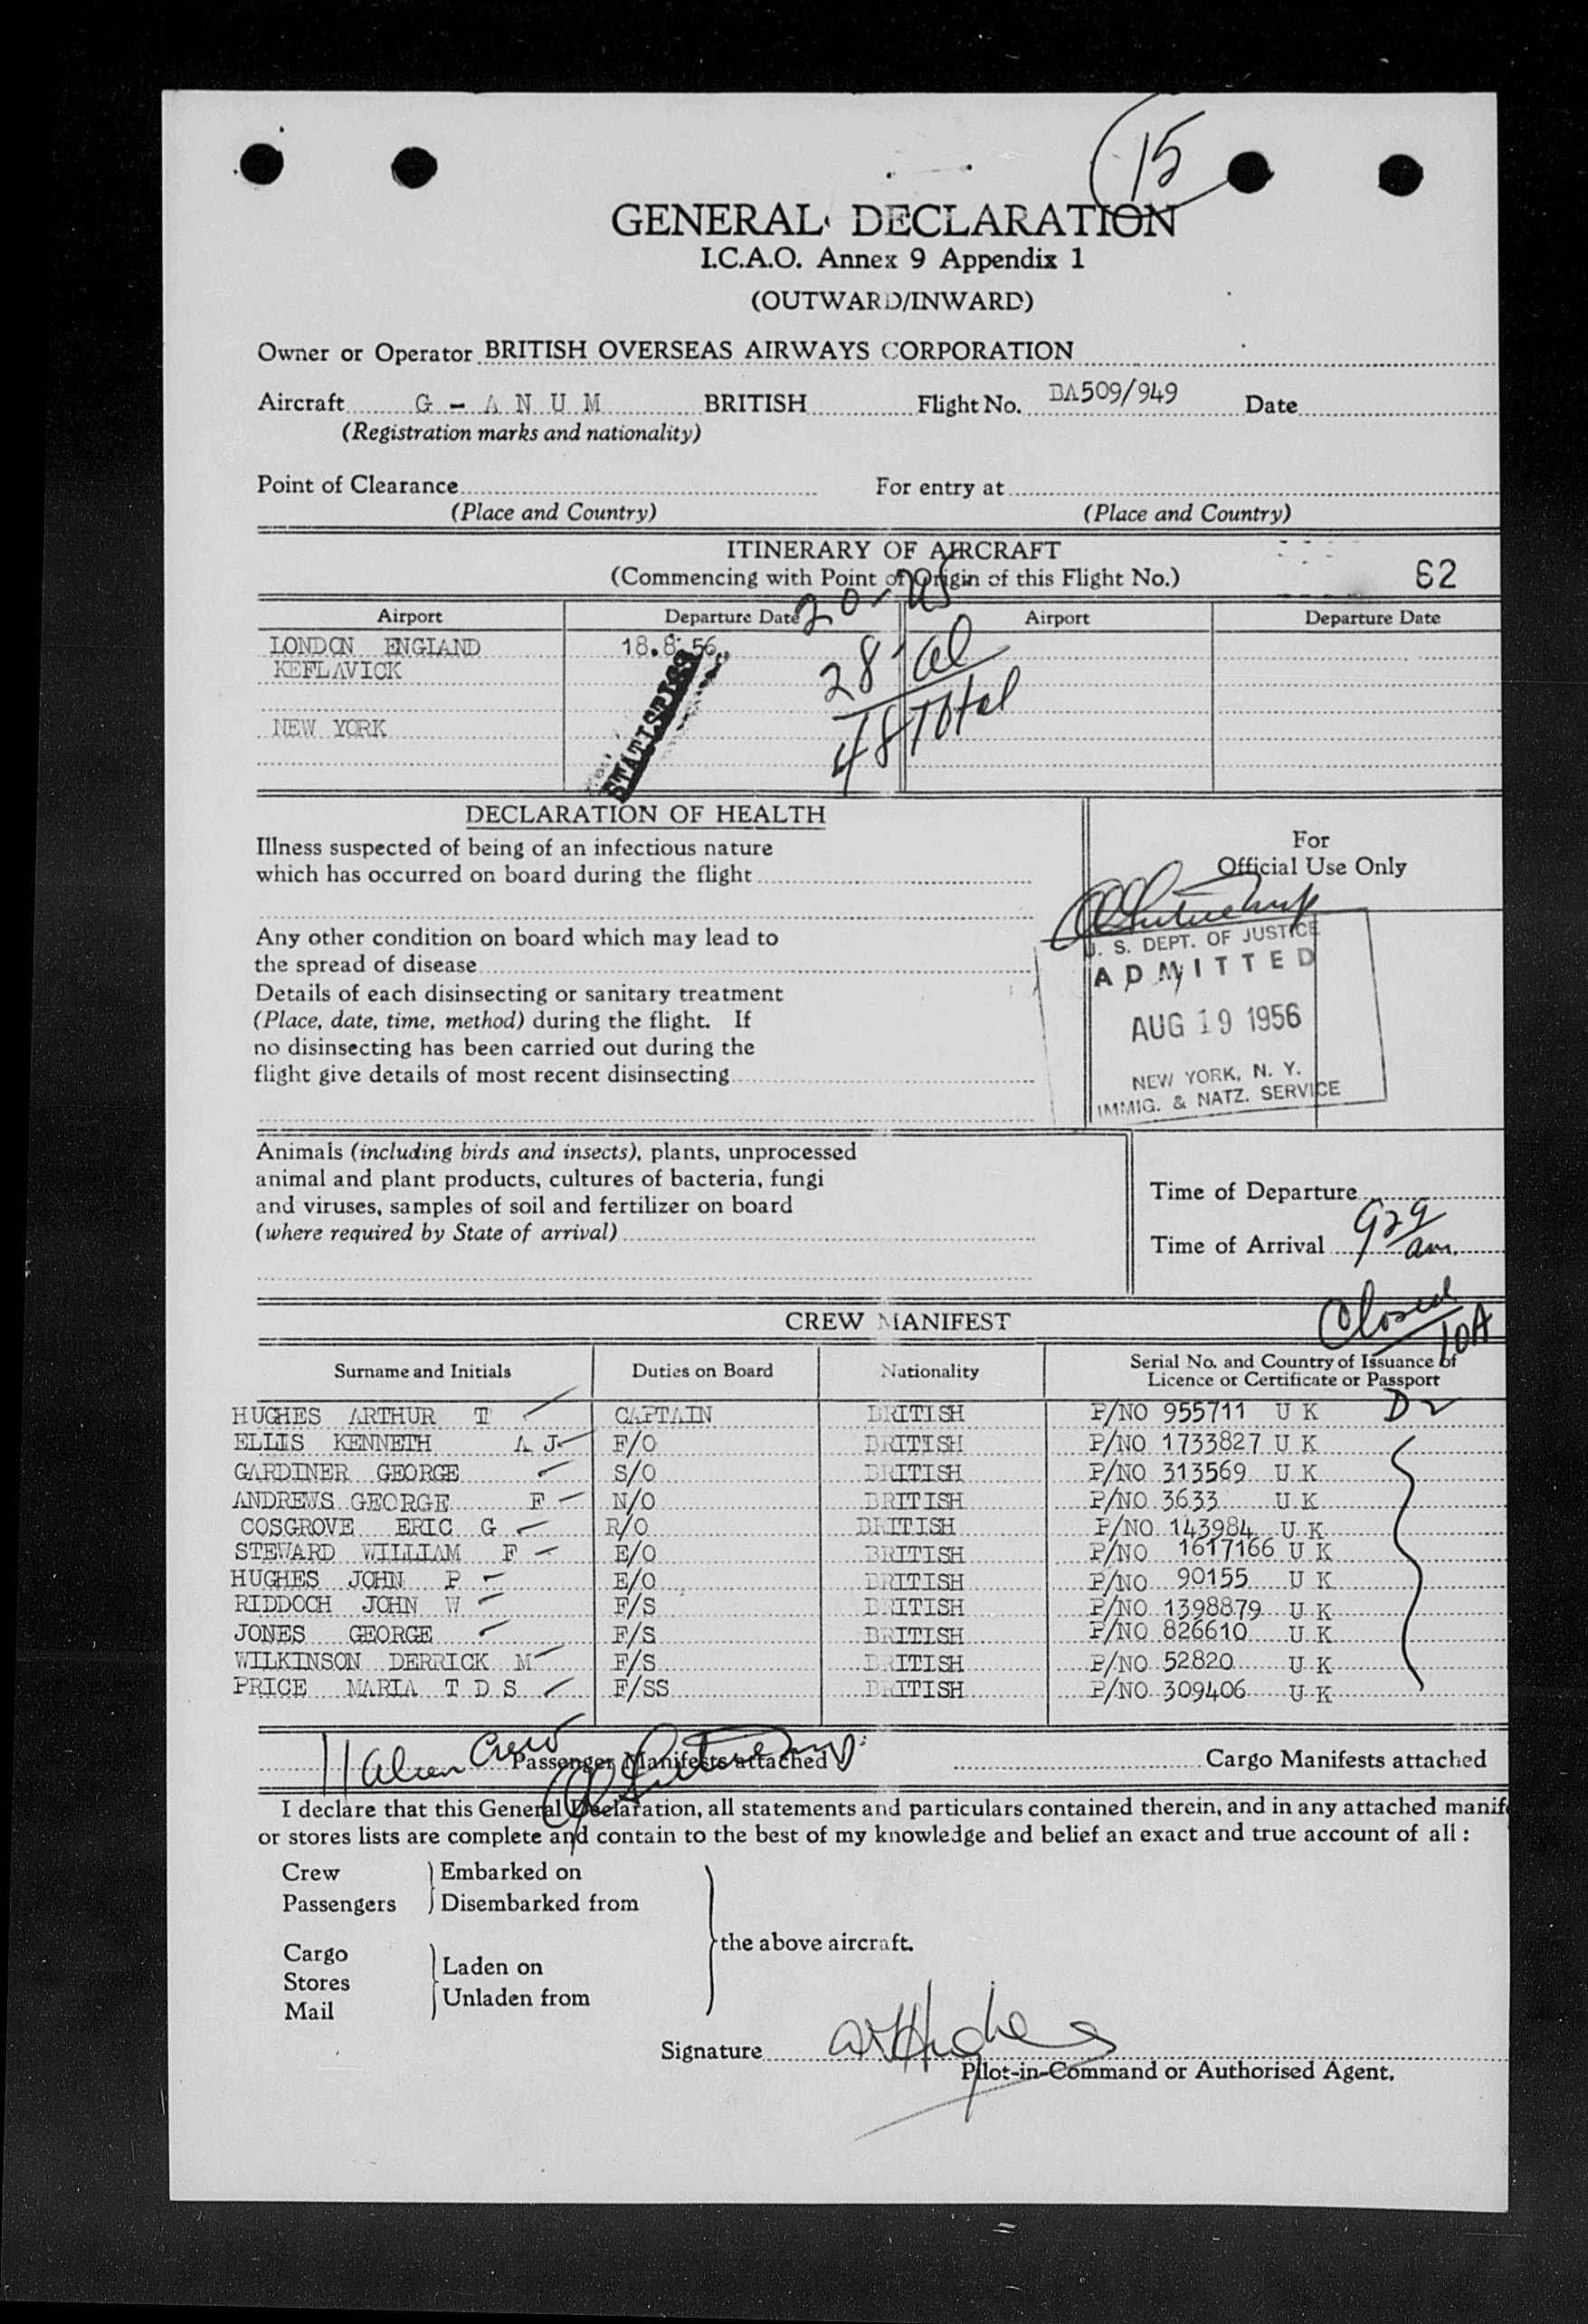 15
GENERAL DECLARATION
I.C.A.O. Annex 9 Appendix 1
(OUTWARD/INWARD)
Owner or Operator BRITISH OVERSEAS AIRWAYS CORPORATION
Aircraft G - A N U M BRITISH Flight No. BA509/949 Date
(Registration marks and nationality)
Point of Clearance For entry at
(Place and Country) (Place and Country)
ITINERARY OF AIRCRAFT
(Commencing with Point of Origin of this Flight No.) 62
Airport Departure Date Airport Departure Date
20 - US
LONDON ENGLAND 18.8.56
KEFLAVICK 28 - al
48 Total
NEW YORK
STATISTICS
DECLARATION OF HEALTH
Illness suspected of being of an infectious nature
which has occurred on board during the flight
For
Official Use Only
Any other condition on board which may lead to
the spread of disease
Details of each disinsecting or sanitary treatment
(Place, date, time, method) during the flight. If
no disinsecting has been carried out during the
flight give details of most recent disinsecting
U. S. DEPT. OF JUSTICE
ADMITTED
AUG 19 1956
NEW YORK, N. Y.
IMMIG. & NATZ. SERVICE
Animals (including birds and insects), plants, unprocessed
animal and plant products, cultures of bacteria, fungi
and viruses, samples of soil and fertilizer on board
(where required by State of arrival)
Time of Departure
Time of Arrival 929 am.
Closed 10A
CREW MANIFEST
Surname and Initials Duties on Board Nationality Serial No. and Country of Issuance of
Licence or Certificate or Passport
HUGHES ARTHUR T CAPTAIN BRITISH P/NO 955711 U K D2
ELLIS KENNETH A J F/O BRITISH P/NO 1733827 U K
GARDINER GEORGE S/O BRITISH P/NO 313569 U K
ANDREWS GEORGE F N/O BRITISH P/NO 3633 U K
COSGROVE ERIC G R/O BRITISH P/NO 143984 U K
STEWARD WILLIAM F E/O BRITISH P/NO 1617166 U K
HUGHES JOHN P E/O BRITISH P/NO 90155 U K
RIDDOCH JOHN W F/S BRITISH P/NO 1398879 U K
JONES GEORGE F/S BRITISH P/NO 826610 U K
WILKINSON DERRICK M F/S BRITISH P/NO 52820 U K
PRICE MARIA T D S F/SS BRITISH P/NO 309406 U K
11 alien Crew
Passenger Manifests attached Cargo Manifests attached
I declare that this General Declaration, all statements and particulars contained therein, and in any attached manif
or stores lists are complete and contain to the best of my knowledge and belief an exact and true account of all :
Crew Embarked on
Passengers Disembarked from
the above aircraft.
Cargo
Stores Laden on
Mail Unladen from
Signature ATHughes
Pilot-in-Command or Authorised Agent.